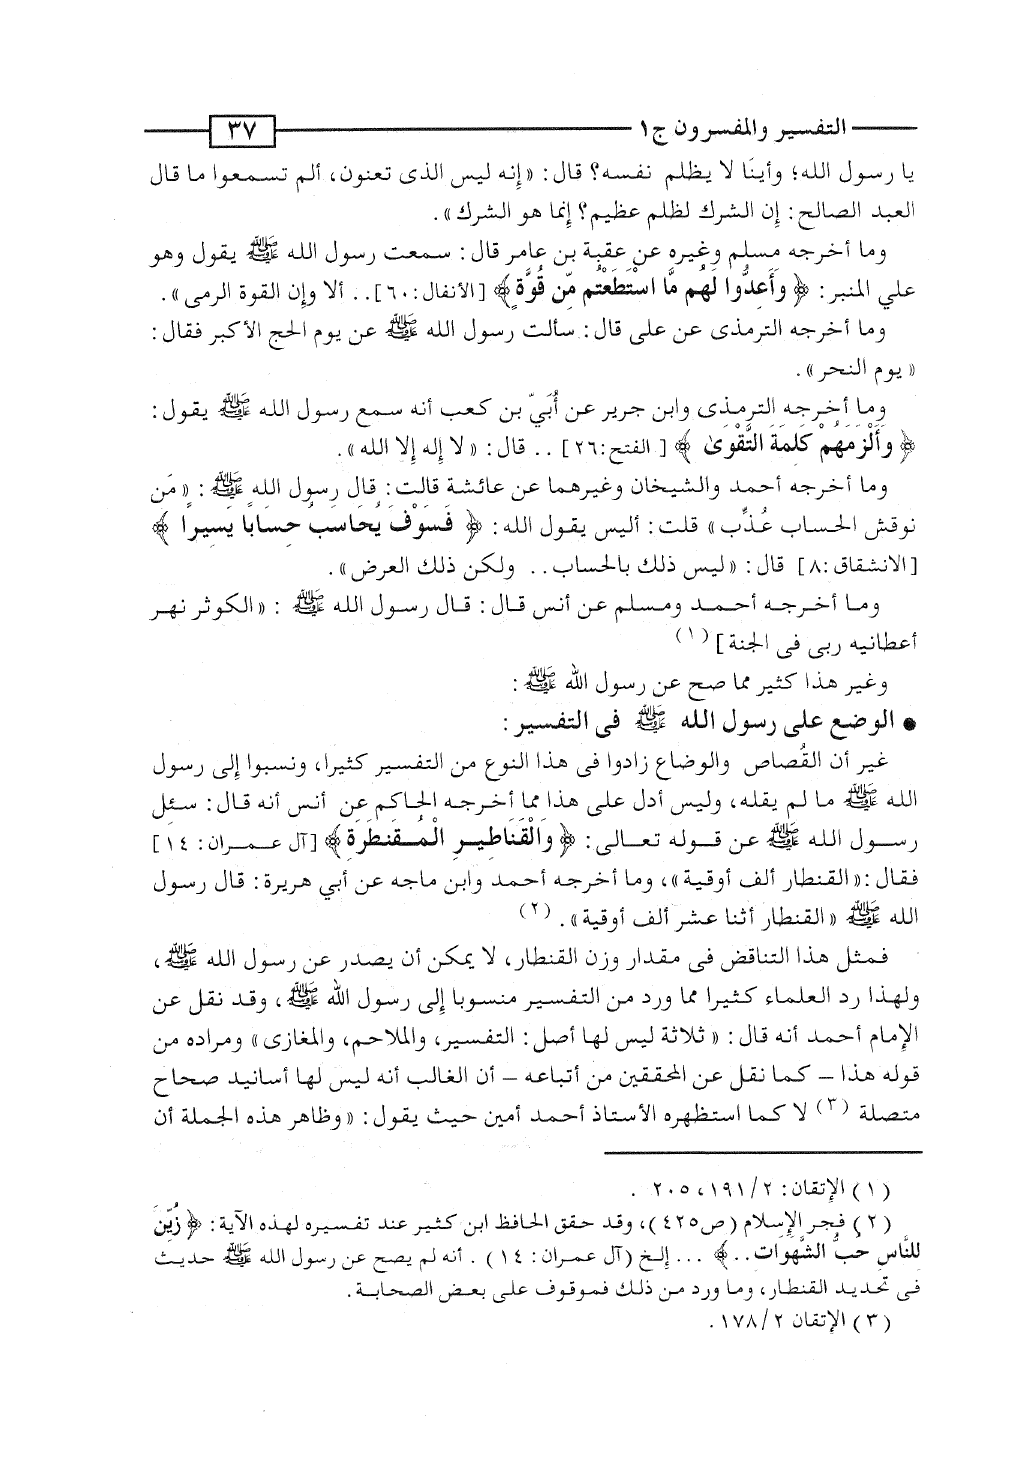 التفسير والمفسرون ج١ ٣٧
يا رسول الله؛ وأينَا لا يظلم نفسه؟ قال: «إِنه ليس الذى تعنون، ألم تسمعوا ما قال
العبد الصالح: إِن الشرك لظلم عظيم؟ إِنما هو الشرك».
وما أخرجه مسلم وغيره عن عقبة بن عامر قال: سمعت رسول الله ﷺ يقول وهو
علي المنبر: ﴿وَأَعِدُّوا لَهُم مَّا اسْتَطَعْتُم مِّن قُوَّةٍ﴾ [الأنفال:٦٠].. ألا وإِن القوة الرمى».
وما أخرجه الترمذى عن على قال: سألت رسول الله ﷺ عن يوم الحج الأكبر فقال:
«يوم النحر».
وما أخرجه الترمذى وابن جرير عن أُبَيّ بن كعب أنه سمع رسول الله ﷺ يقول:
﴿وَأَلْزَمَهُمْ كَلِمَةَ التَّقْوَىٰ﴾ [الفتح:٢٦].. قال: «لا إِله إِلا الله».
وما أخرجه أحمد والشيخان وغيرهما عن عائشة قالت: قال رسول الله ﷺ: «مَن
نوقش الحساب عُذِّب» قلت: أليس يقول الله: ﴿فَسَوْفَ يُحَاسَبُ حِسَابًا يَسِيرًا﴾
[الانشقاق:٨] قال: «ليس ذلك بالحساب.. ولكن ذلك العرض».
وما أخرجه أحمد ومسلم عن أنس قال: قال رسول الله ﷺ : «الكوثر نهر
أعطانيه ربى فى الجنة] (١)
وغير هذا كثير مما صح عن رسول الله ﷺ:
● الوضع على رسول الله ﷺ فى التفسير:
غير أن القُصاص والوضاع زادوا فى هذا النوع من التفسير كثيرا، ونسبوا إِلى رسول
الله ﷺ ما لم يقله، وليس أدل على هذا مما أخرجه الحاكم عن أنس أنه قال: سئل
رسول الله ﷺ عن قوله تعالى: ﴿وَالْقَنَاطِيرِ الْمُقَنطَرَةِ﴾ [آل عمران: ١٤]
فقال:«القنطار ألف أوقية»، وما أخرجه أحمد وابن ماجه عن أبي هريرة: قال رسول
الله ﷺ «القنطار أثنا عشر ألف أوقية». (٢)
فمثل هذا التناقض فى مقدار وزن القنطار، لا يمكن أن يصدر عن رسول الله ﷺ،
ولهذا رد العلماء كثيرا مما ورد من التفسير منسوبا إِلى رسول الله ﷺ، وقد نقل عن
الإِمام أحمد أنه قال: «ثلاثة ليس لها أصل: التفسير، والملاحم، والمغازى» ومراده من
قوله هذا – كما نقل عن المحققين من أتباعه – أن الغالب أنه ليس لها أسانيد صحاح
متصلة (٣) لا كما استظهره الأستاذ أحمد أمين حيث يقول: «وظاهر هذه الجملة أن
(١) الإِتقان: ١٩١/٢، ٢٠٥ .
(٢) فجر الإِسلام (ص٤٢٥)، وقد حقق الحافظ ابن كثير عند تفسيره لهذه الآية: ﴿زُيِّنَ
لِلنَّاسِ حُبُّ الشَّهَوَاتِ..﴾ ... إِلخ (آل عمران: ١٤) . أنه لم يصح عن رسول الله ﷺ حديث
فى تحديد القنطار، وما ورد من ذلك فموقوف على بعض الصحابة.
(٣) الإِتقان ١٧٨/٢.